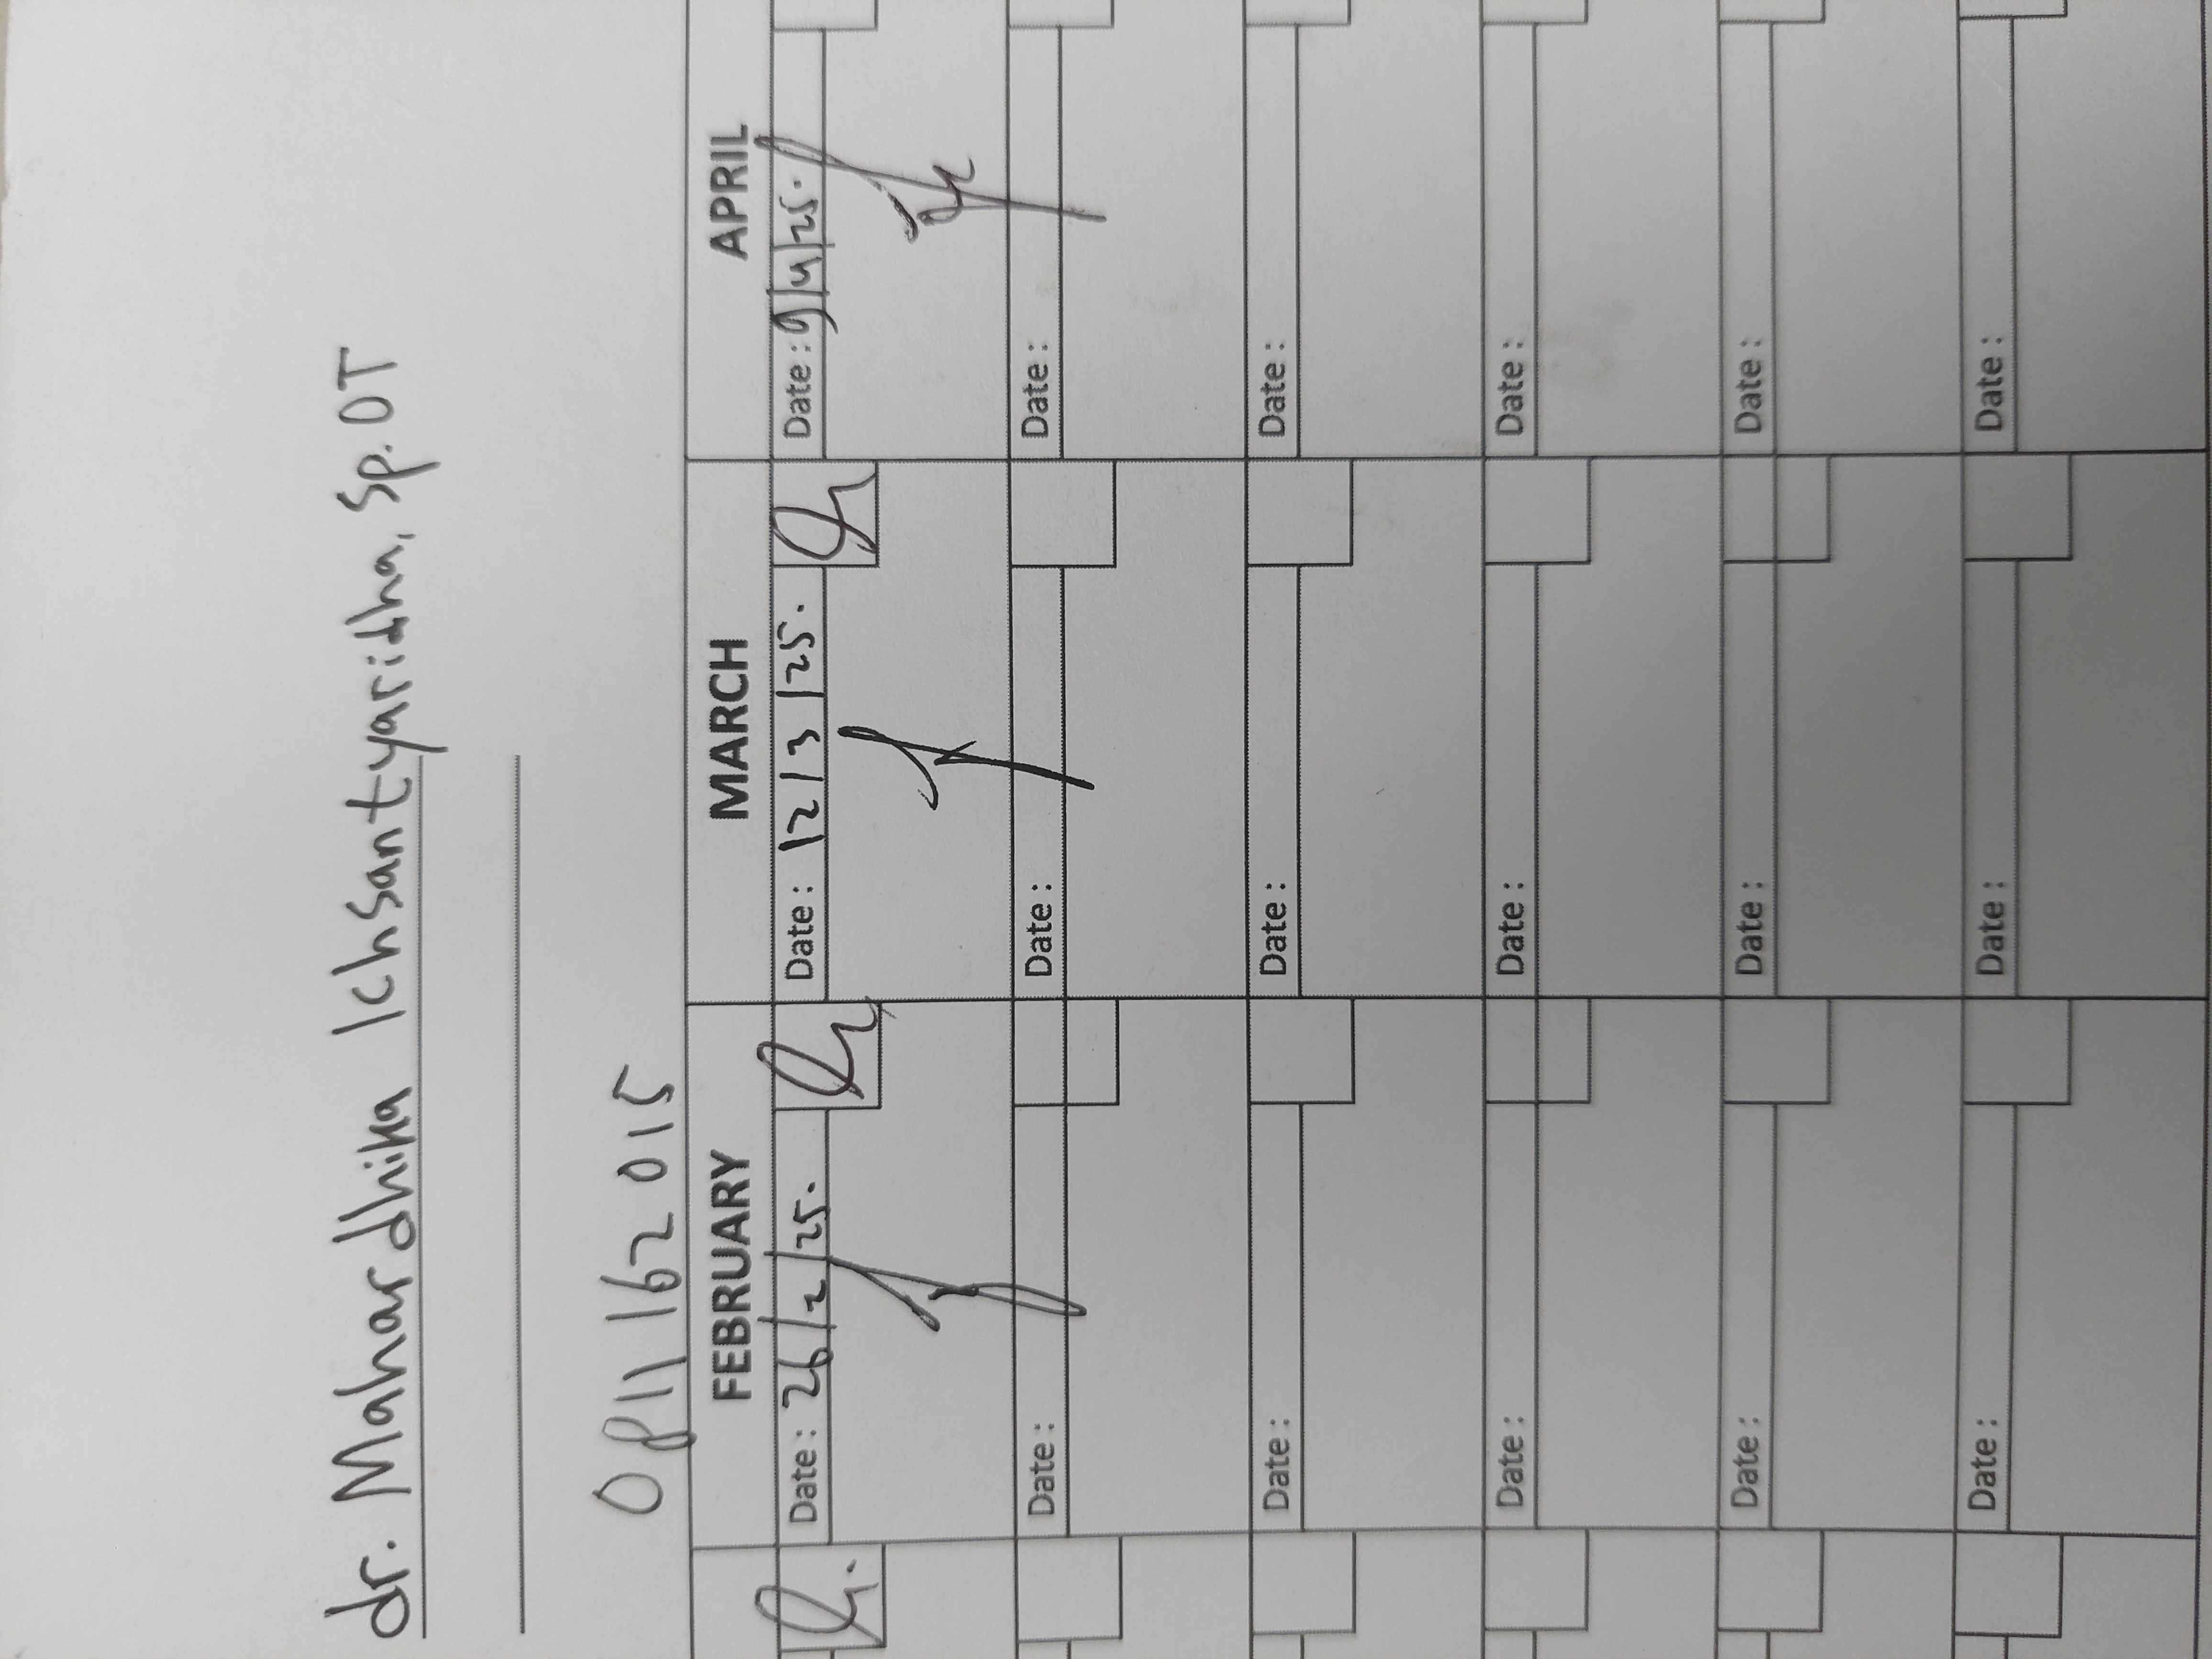 dr. Mahardhika Ichsantyaridha, Sp.OT
0811162015
FEBRUARY MARCH APRIL
Date : 26/2/25. Date : 12/3/25. Date : 9/4/25.
Date : Date : Date :
Date : Date : Date :
Date : Date : Date :
Date : Date : Date :
Date : Date : Date :